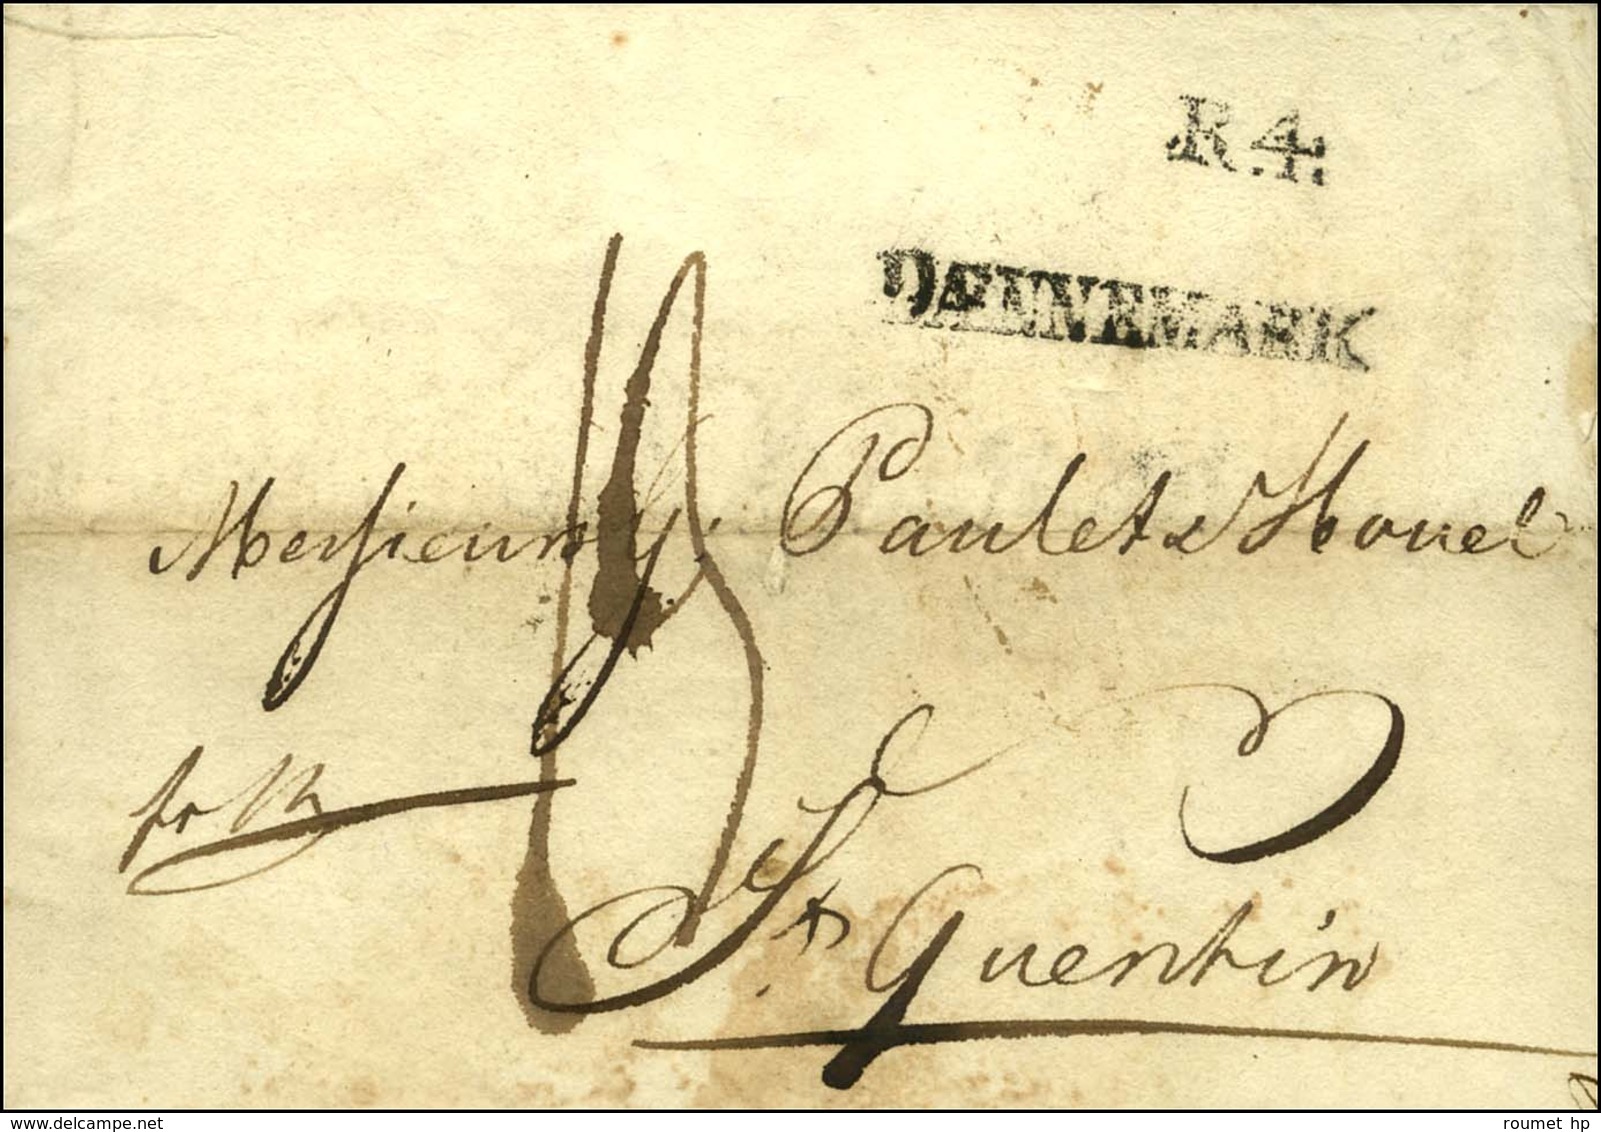 R.4.
DAENNEMARK
Messieurs Paulet & Houel
St. Quentin
delcampe.net
roumet hp